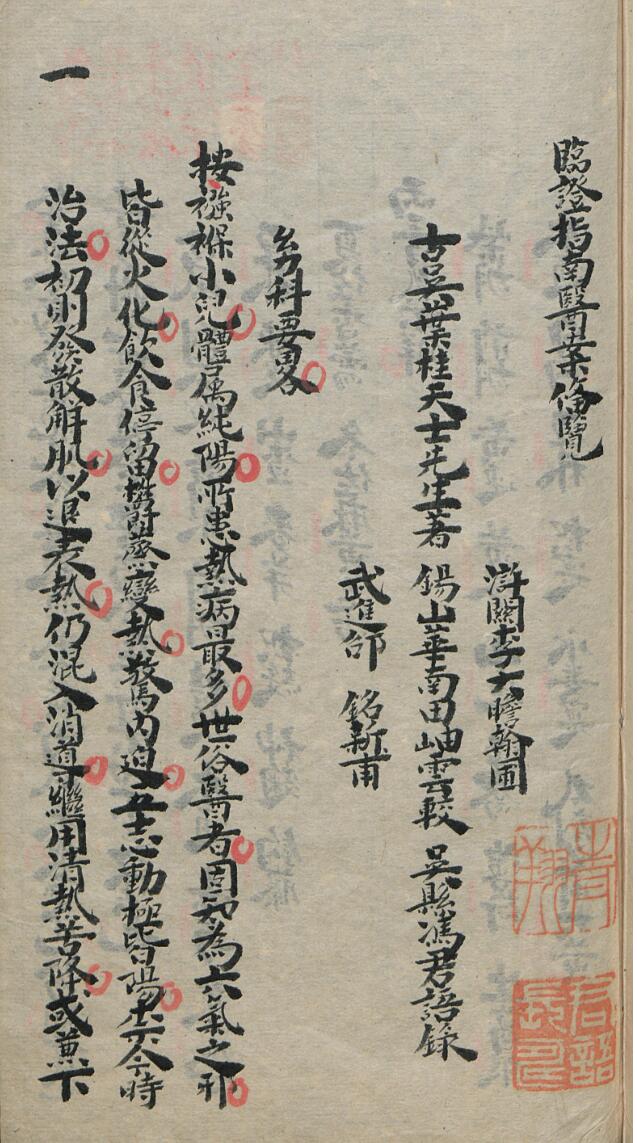 臨證指南醫案俻覽
滸關李大瞻翰圃
古吳葉桂天士先生著 錫山華南田岫雲較 吳縣馮君語錄
武進邵 銘新甫
幼科要畧
按襁褓小兒體属純陽所患熱病最多世俗醫者固知為六氣之邪
皆從火化飲食停留欝蒸變熱驚內迫五志動極皆陽奈今時
一
治法初則發散解肌以退表熱仍混入消導繼用清熱苦降或兼下